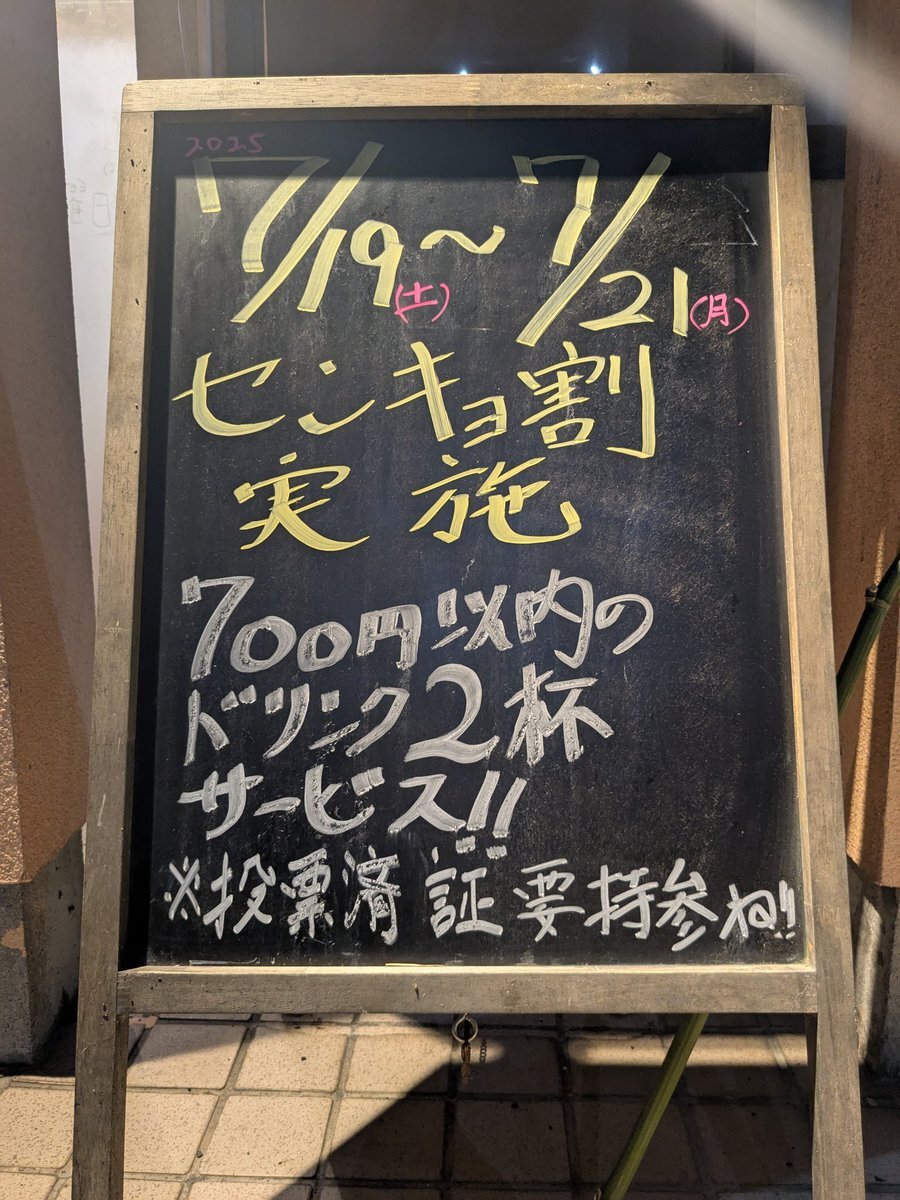 2025
7/19(土)～7/21(月)
センキョ割
実施
700円以内の
ドリンク2杯
サービス!!
※投票済証要持参ね!!